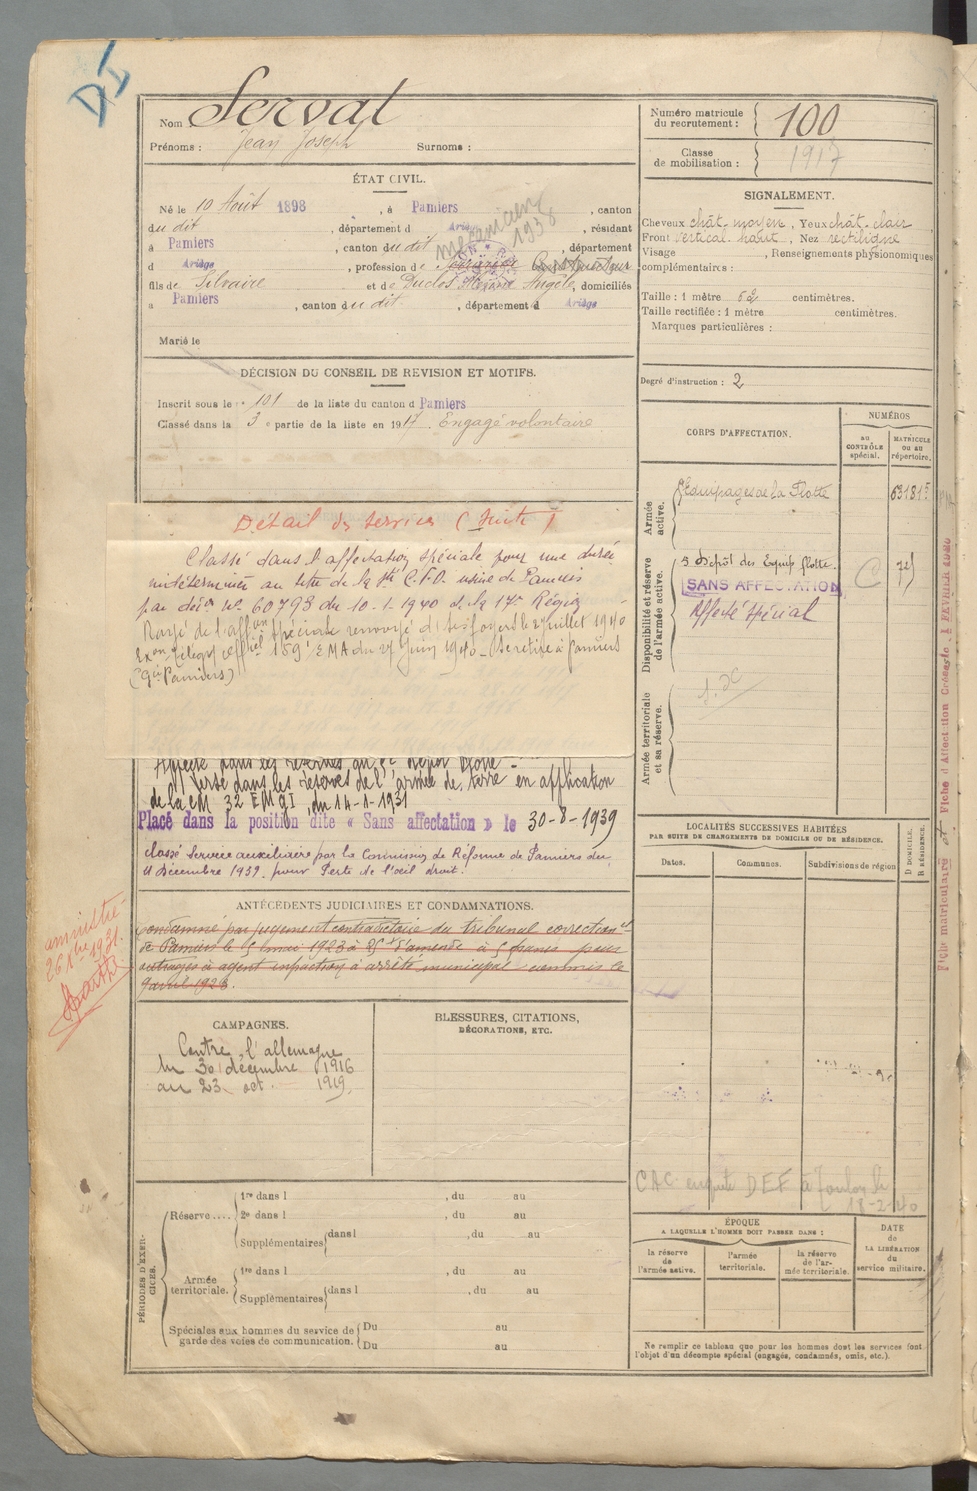 DI
Nom : Serval
Prénoms : Jean Joseph Surnoms :
Numéro matricule
du recrutement : 100
Classe
de mobilisation : 1917
ÉTAT CIVIL.
Né le 10 Août 1898, à Pamiers, canton
du dit, département d Ariège, résidant
à Pamiers, canton du dit, département
d Ariège, profession de
mécanicien
1938
fils de Silvaire et de Duclos Angèle, domiciliés
à Pamiers, canton du dit, département d Ariège
Marié le
SIGNALEMENT.
Cheveux chât. moyen, Yeux chât. clair
Front vertical. haut, Nez rectiligne
Visage , Renseignements physionomiques
complémentaires :
Taille : 1 mètre 62 centimètres.
Taille rectifiée : 1 mètre centimètres.
Marques particulières :
Degré d'instruction : 2
DÉCISION DU CONSEIL DE REVISION ET MOTIFS.
Inscrit sous le n° 101 de la liste du canton d Pamiers
Classé dans la 3e partie de la liste en 1917. Engagé volontaire
Détail des services (Suite)
Classé dans l'affectation spéciale pour une durée
indéterminée au titre de la Sté C.F.O. usine de Pamiers
par décion No 60793 du 10-1-1940 de la 17e Région
Rayé de l'affon spéciale renvoyé dses foyers le 2 juillet 1940
Exon Télégr offiel 159 EMA du 27 juin 1940 - Se retire à Pamiers
(Gie Pamiers)
Affecté dans les réserves du 5e Dépôt Flotte -
Versé dans les réserves de l'armée de terre en application
de la CM 32 EMGI du 14-1-1931
Placé dans la position dite « Sans affectation » le 30-8-1939
Classé Service auxiliaire par la Commission de Réforme de Pamiers du
11 Décembre 1939. pour Perte de l'oeil droit.
CORPS D'AFFECTATION.
NUMÉROS
AU CONTRÔLE spécial.
MATRICULE OU AU répertoire.
Armée active.
Equipages de la Flotte 63181 5
Disponibilité et réserve de l'armée active.
5 Dépôt des Equip flotte C
SANS AFFECTATION
Affecté Spécial
Armée territoriale et sa réserve.
Fiche matriculaire et Fiche d'Affectation Créées le 1 FEVRIER 1926
LOCALITÉS SUCCESSIVES HABITÉES
PAR SUITE DE CHANGEMENTS DE DOMICILE OU DE RÉSIDENCE.
Dates. Communes. Subdivisions de région
D DOMICILE.
R RÉSIDENCE.
CAC enquête DEF à Toulon le
18-2-40
ANTÉCÉDENTS JUDICIAIRES ET CONDAMNATIONS.
Condamné par jugement contradictoire du tribunal correctionel
de Pamiers le 15 mai 1923 à 25f d'amende à 5 francs pour
outrages à agent infraction à arrêté municipal commis le
9 avril 1923.
amnistié
26 Xbre 1931.
CAMPAGNES.
Contre l'allemagne
du 30 décembre 1916
au 23 oct. 1919.
BLESSURES, CITATIONS,
DÉCORATIONS, ETC.
PÉRIODES D'EXERCICES.
Réserve....
1re dans l , du au
2e dans l , du au
Supplémentaires dans l , du au
Armée territoriale.
1re dans l , du au
Supplémentaires dans l , du au
Spéciales aux hommes du service de
garde des voies de communication.
Du au
Du au
ÉPOQUE
A LAQUELLE L'HOMME DOIT PASSER DANS :
la réserve de l'armée active.
l'armée territoriale.
la réserve de l'armée territoriale.
DATE de LA LIBÉRATION du service militaire.
Ne remplir ce tableau que pour les hommes dont les services font
l'objet d'un décompte spécial (engagés, condamnés, omis, etc.).